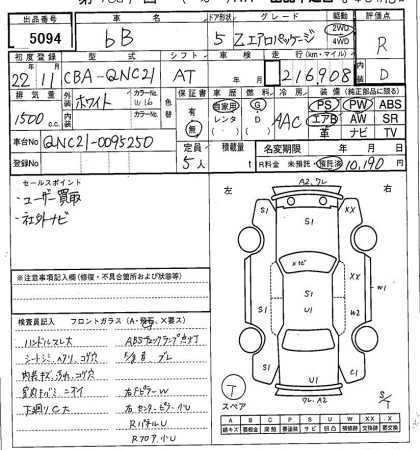 出品番号 車名 ドア形状 グレード 駆動 評価点
5094 bB 5 Zエアロパッケージ 2WD 4WD R
初度登録 型式 シフト 車検 走行(km・マイル) 内装
22年11月 CBA-QNC21 AT 年 月 216,908 D
排気量 外装 カラーNo. 色替 保証書 車歴 燃料 冷房 装備(純正部品に限る)
1500c.c. ホワイト W16 有 無 自家用 レンタ G D AAC PS PW ABS
内装 カラーNo. エアB AW SR
革 ナビ TV
車台No QNC21-0095250 定員 積載量 名変期限 年 月 日
登録No 5人 t R料金 未預託・預託済 10,190円
セールスポイント
・ユーザー買取
・社外ナビ
左 右
A2,ワレ
S1 S1 XX XX
S1 S1 W1
S1 U1 W2
S1 U1 C1
ワレ,A2
※注意事項記入欄(修復・不具合箇所および状態等)
検査員記入 フロントガラス(A・飛石、X要ス)
ハンドルスレ大 ABSチェックランプ点灯
シートシミ、ヘタリ、コゲ穴
内装キズ、汚れ、コゲ穴 右FピラーW
下廻りC大 右センターピラー小U
RパネルU
Rフロア小U
T
スペア S/T
A B C P S U W X XX ×